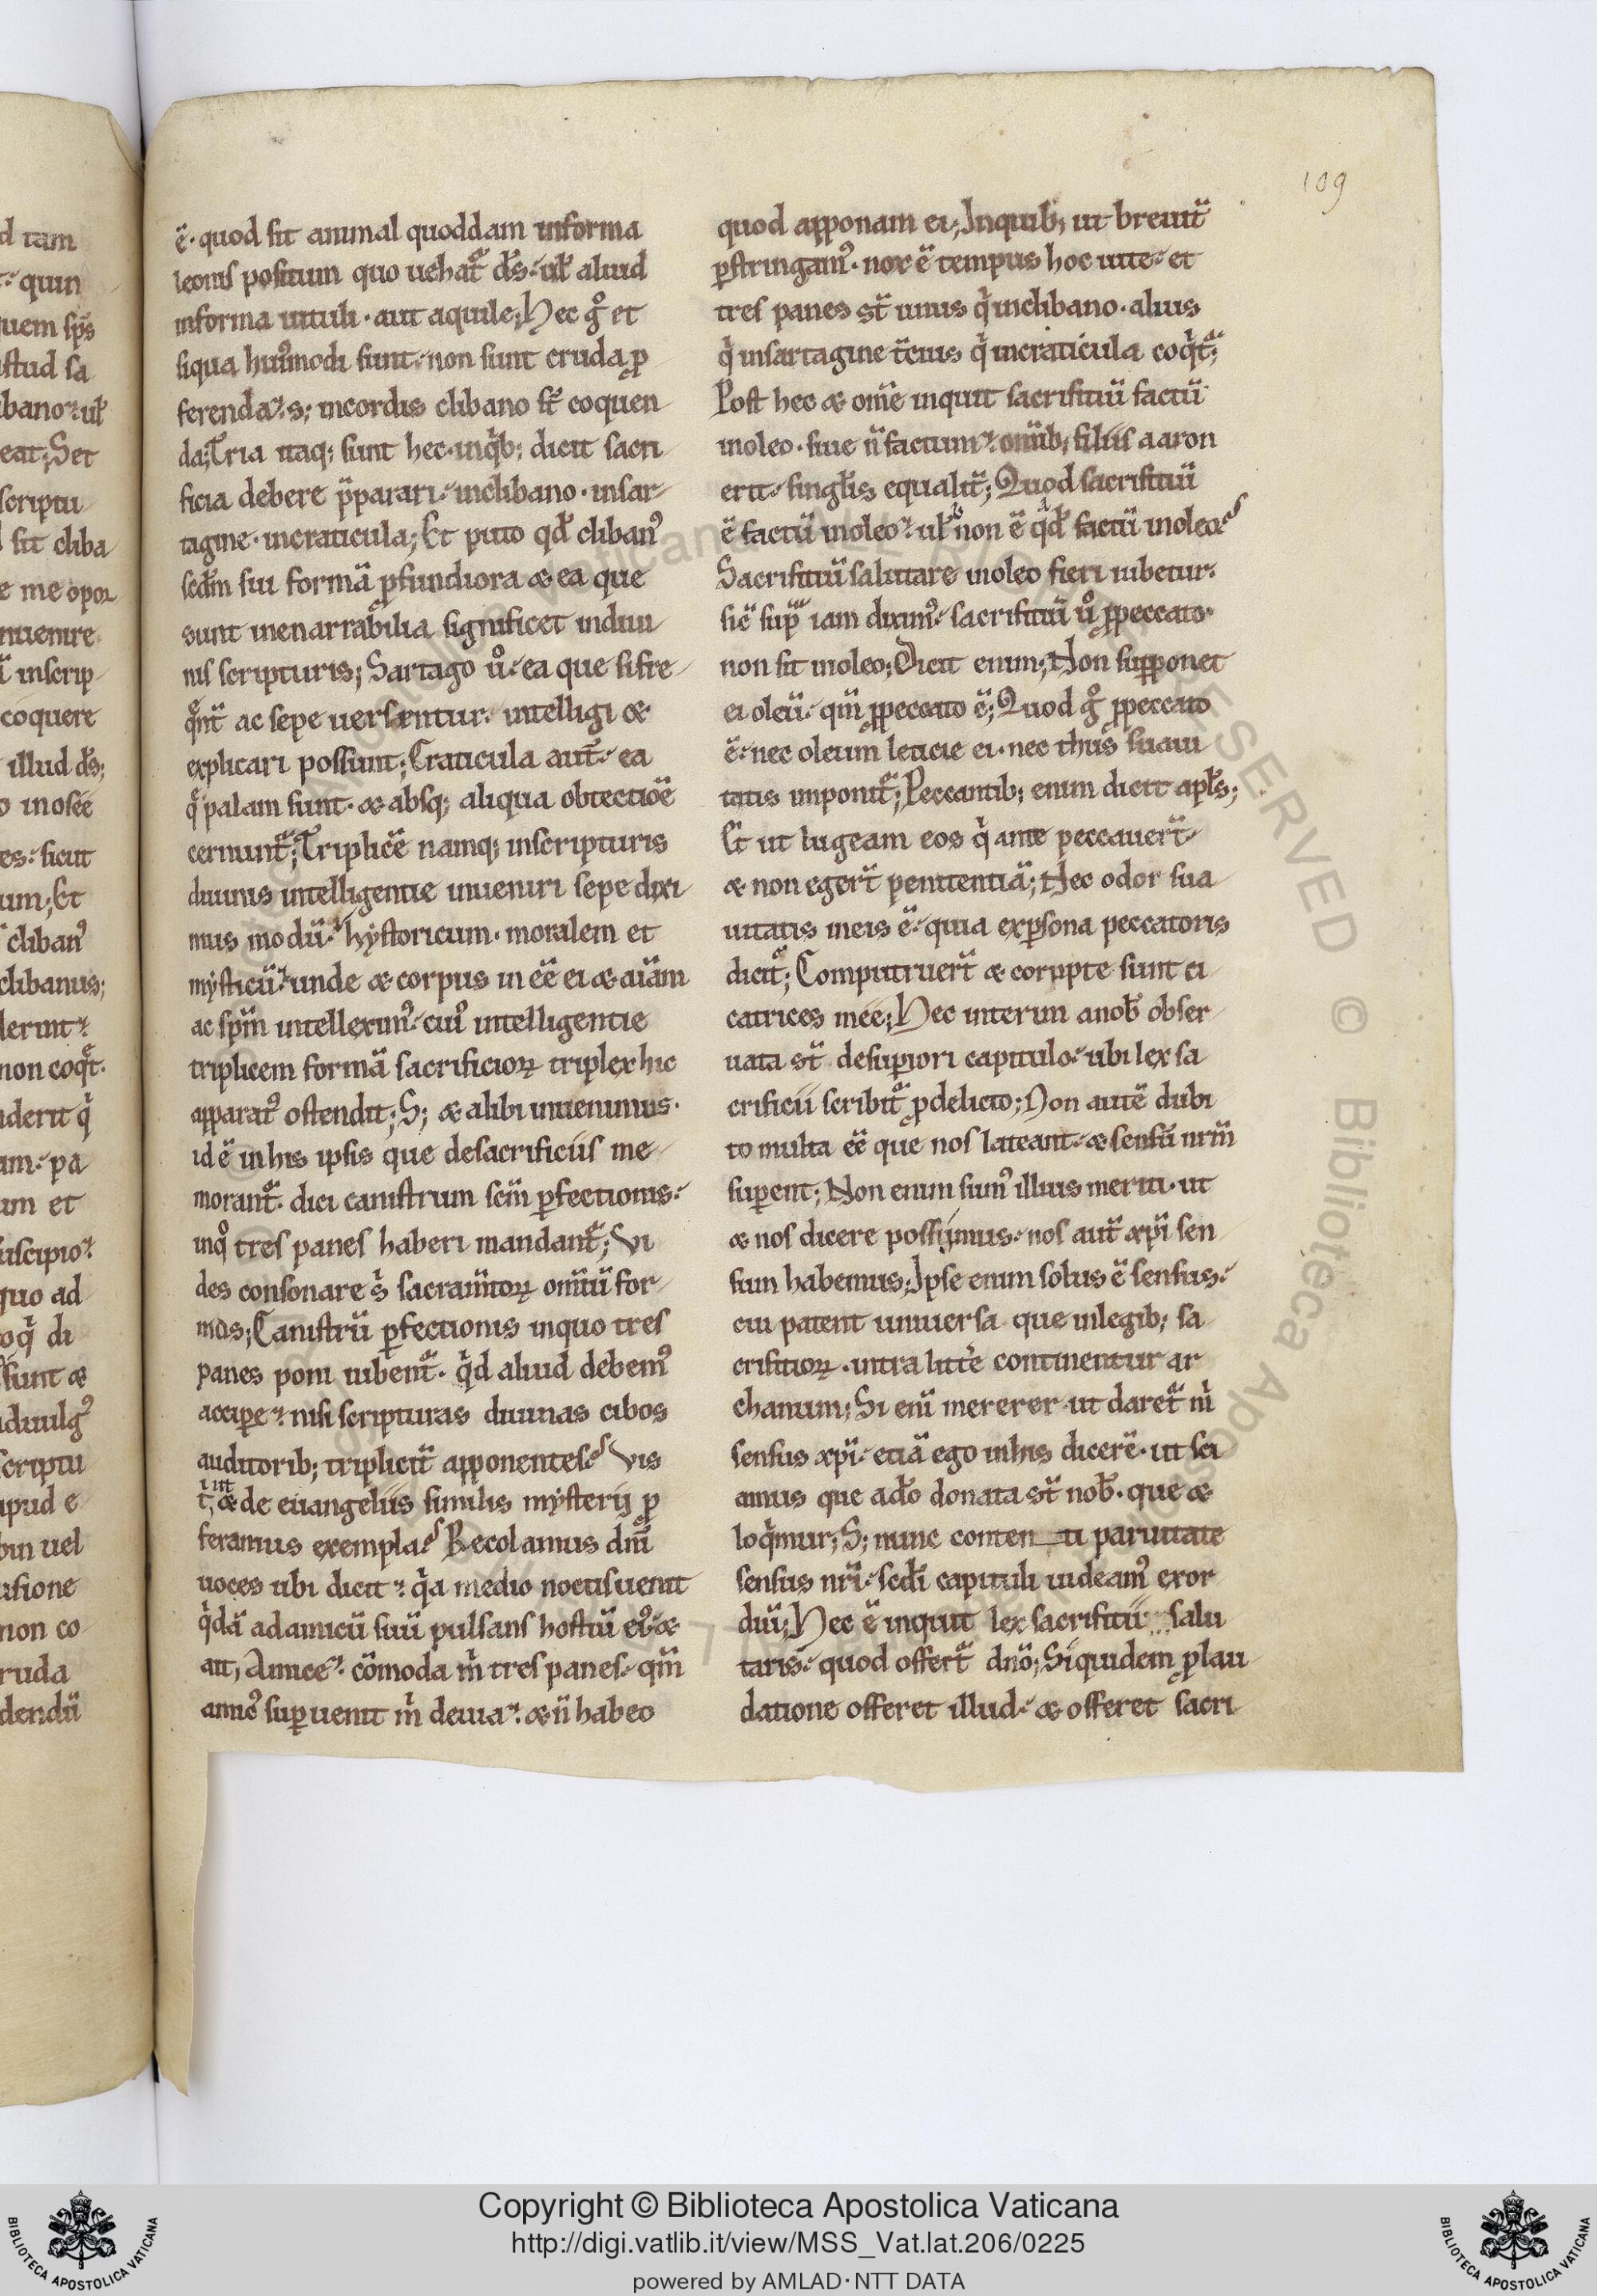 109
ē· quod sit animal quoddam informa
leonis positum quo uehat᷑ d̄s· ul̄ aliud
informa uituli· aut aquile; Hec g̊ et
siqua hui᷒modi sunt· non sunt cruda ꝓ
ferenda· s; incordis clibano s̄t coquen
da; Tria itaq; sunt hec· inq̇b; dicit sacri
ficia debere p̄parari· inclibano· insar
tagine· incraticula; Et puto qd̄ cliban᷒
sed̄m sui formā ꝓfundiora & ea que
sunt inenarrabilia significet indiui
nis scripturis; Sartago ů· ea que sifre
q̄nt̄ ac sepe uersentur· intelligi &
explicari possunt; Craticula aut̄· ea
q̄ palam sunt· & absq; aliqua obtectiōē
cernunt᷑; Triplicē namq; inscripturis
diuinis intelligentie inueniri sepe dixi
mus modū· hystoricum· moralem et
mysticū· unde & corpus in eē ei & aīam
ac sp̄m intellexim᷒· cui᷒ intelligentie
triplicem formā sacrificioꝝ triplex hic
apparat᷒ ostendit; S; & alibi inuenimus·
id ē inhis ipsis que desacrificiis me
morant᷑· dici canistrum scm̄ ꝑfectionis·
inq̊ tres panes haberi mandant᷑; Vi
des consonare s̓ sacram̄toꝝ om̄iū for
mas; Canistrū ꝑfectionis inquo tres
panes poni iubent᷑· q̇d aliud debem᷒
accipe· nisi scripturas diuinas cibos
auditorib; triplicit̄ apponentes· Vis
t, & de euangeliis similis mysterij ꝓ
int
feramus exempla· Recolamus dn̄i
uoces ubi dicit· q̇a medio noctis uenit
q̇dā ad amicū suū pulsans hostiū ei᷒· &
ait, Amice· cōmoda m̓ tres panes· qm̄
amic᷒ suꝑuenit m̓ deuia· & n̄ habeo
quod apponam ei; Inquib; ut breuit̄
ꝑstringam᷒· nox ē tempus hoc uite· et
tres panes s̄t unus q̇ inclibano· alius
q̇ insartagine t̄cius q̇ incraticula coq̇t᷑;
Post hec & om̄e inquit sacrifitiū factū
inoleo· siue n̄ factum· om̄ib; filiis aaron
erit· singl̄is equalit̄; Quod sacrifitiū
ē factū inoleo· ul̄ non ē q̇d̄ factū inoleo·
Sacrifitiū salutare inoleo fieri iubetur·
sic̄ sup̄ iam dixim᷒· sacrifitiū ů ꝓpeccato·
non fit inoleo; Dicit enim; Non supponet
ei oleū· qm̄ ꝓpeccato ē; Quod g̊ ꝓpeccato
ē· nec oleum leticie ei· nec thus suaui
tatis imponit᷑; Peccantib; enim dicit apl̄s;
Et ut lugeam eos q̇ ante peccauer̄t·
& non eger̄t penitentiā; Nec odor sua
uitatis ineis ē· quia exꝑsona peccatoris
dicit᷑; Computruer̄t & corrupte sunt ci
catrices mee; Hec interim anob̄ obser
uata s̄t desuperiori capitulo· ubi lex sa
crificii scribit᷑ ꝓdelicto; Non autē dubi
to multa eē que nos lateant· & sensū nrm̄
superent; Non enim sum᷒ illius meriti· ut
& nos dicere possimus· nos aut̄ xp̄i sen
sum habemus; Ipse enim solus ē sensus·
cui patent uniuersa que inlegib; sa
crifitioꝝ· intra litt̄e continentur ar
chanum; Si enī mererer ut daret᷑ m̓
sensus xp̄i· etiā ego inhis dicerē· ut sci
amus que ad̄o donata s̄t nob̄· que &
loq̇mur; S; nunc contenti paruitate
sensus nr̄i· sed̄i capituli uideam᷒ exor
diū; Hec ē inquit lex sacrifitii salu
taris· quod offert᷑ dn̄o; Siquidem ꝓlau
datione offeret illud· & offeret sacri
Copyright © Biblioteca Apostolica Vaticana
http://digi.vatlib.it/view/MSS_Vat.lat.206/0225
powered by AMLAD·NTT DATA
BIBLIOTECA APOSTOLICA VATICANA
BIBLIOTECA APOSTOLICA VATICANA